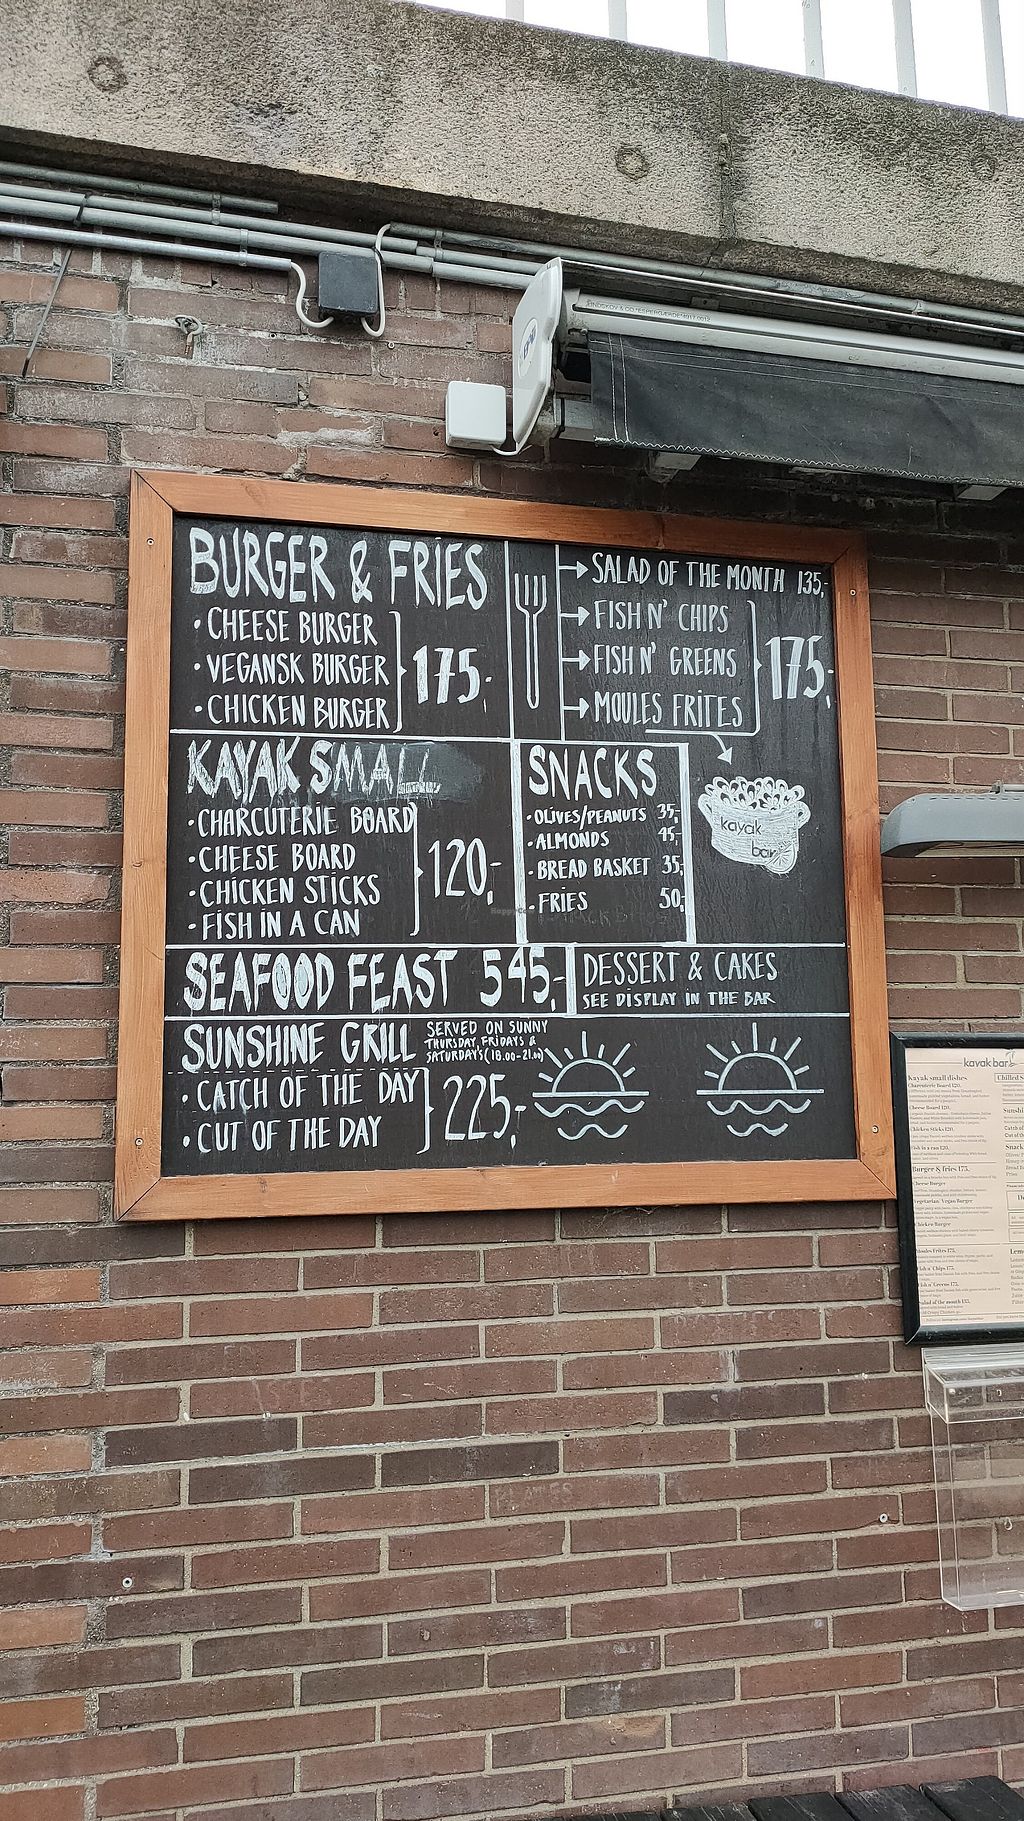 LINDSKOV & CO. ESPERGÆRDE 4917 0012
BURGER & FRIES
• CHEESE BURGER
• VEGANSK BURGER
• CHICKEN BURGER
175,-
SALAD OF THE MONTH 135,-
FISH N' CHIPS
FISH N' GREENS
MOULES FRITES
175,-
KAYAK SMALL
• CHARCUTERIE BOARD
• CHEESE BOARD
• CHICKEN STICKS
• FISH IN A CAN
120,-
SNACKS
• OLIVES/PEANUTS 35,-
• ALMONDS 45,-
• BREAD BASKET 35,-
• FRIES 50,-
kayak
bar
SEAFOOD FEAST 545,-
DESSERT & CAKES
SEE DISPLAY IN THE BAR
SUNSHINE GRILL
SERVED ON SUNNY
THURSDAY, FRIDAYS &
SATURDAYS (18.00-21.00)
• CATCH OF THE DAY
• CUT OF THE DAY
225,-
kayak bar
Kayak small dishes
Charcuterie Board 120,
Cheese Board 120,
Chicken Sticks 120,
Fish in a can 120,
Burger & fries 175,
Cheese Burger
Vegetarian/Vegan Burger
Chicken Burger
Moules Frites 175,
Fish n' Chips 175,
Fish n' Greens 175,
Salad of the month 135,